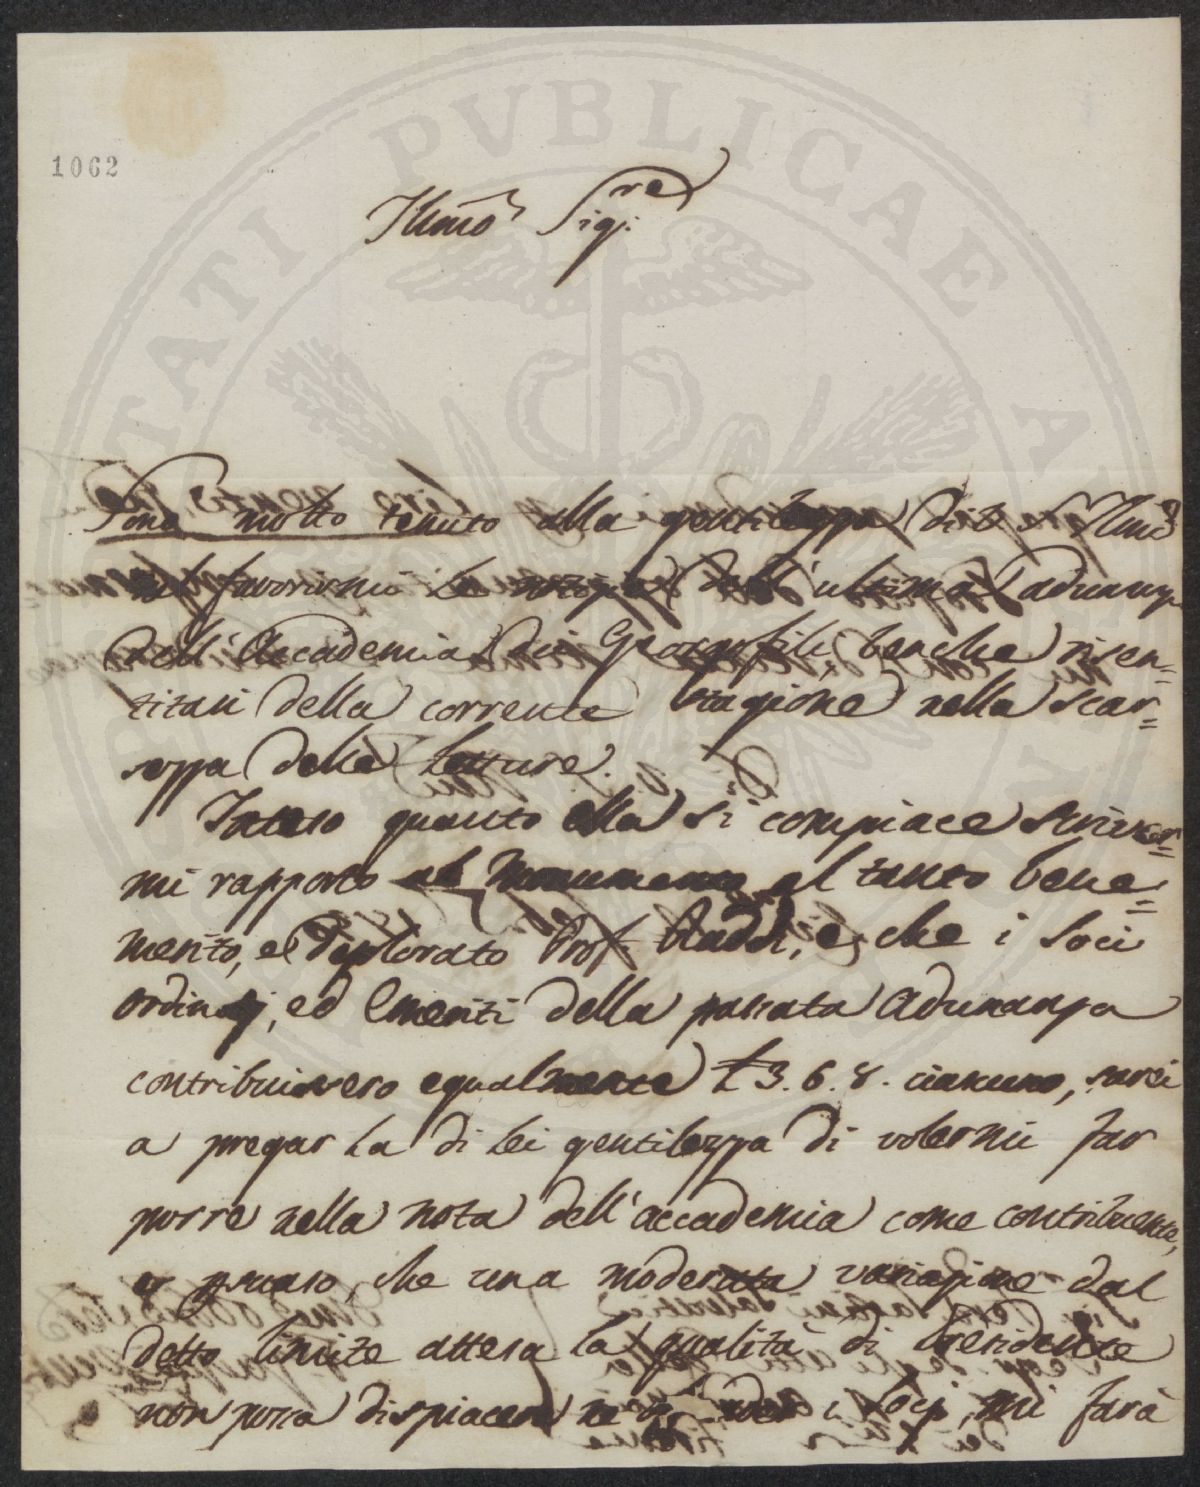 1062
Illmo Sigre
Sono molto tenuto alla gentilezza di S. Illma
nel favorirmi le notizie dell'ultima adunanza
dell'Accademia dei Georgofili, benche risen=
titasi della corrente stagione nella scar=
sezza delle letture.
Inteso quanto ella si compiace scriver=
mi rapporto al Monumento al tanto bene=
merito, e deplorato Prof. Raddi, e che i Soci
ordinarj, ed Emeriti della passata Adunanza
contribuissero egualmente £ 3. 6. 8. ciascuno, sarei
a pregar la di lei gentilezza di volermi far
porre nella nota dell'accademia come contribuente,
e che una moderata variazione dal
detto limite attesa la qualità di Presidente
non possa dispiacere i Socj, mi farà
PVBLICAE